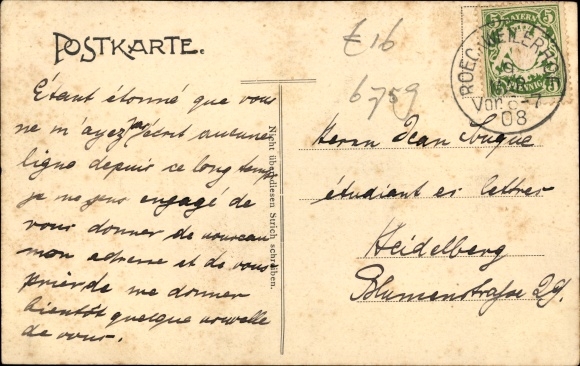 POSTKARTE.
£16
6759
BAYERN
5 5
PFENNIG
VORM 6-7
08
Étant étonné que vous
ne m'ayez pas écrit aucune
ligne depuis ce long temps
je me suis engagé de
vous donner de nouveau
mon adresse et de vous
prier de me donner
bientôt quelque nouvelle
de vous.
Nicht über diesen Strich schreiben.
Herrn Jean
étudiant es lettres
Heidelberg
Blumenstraße 29.